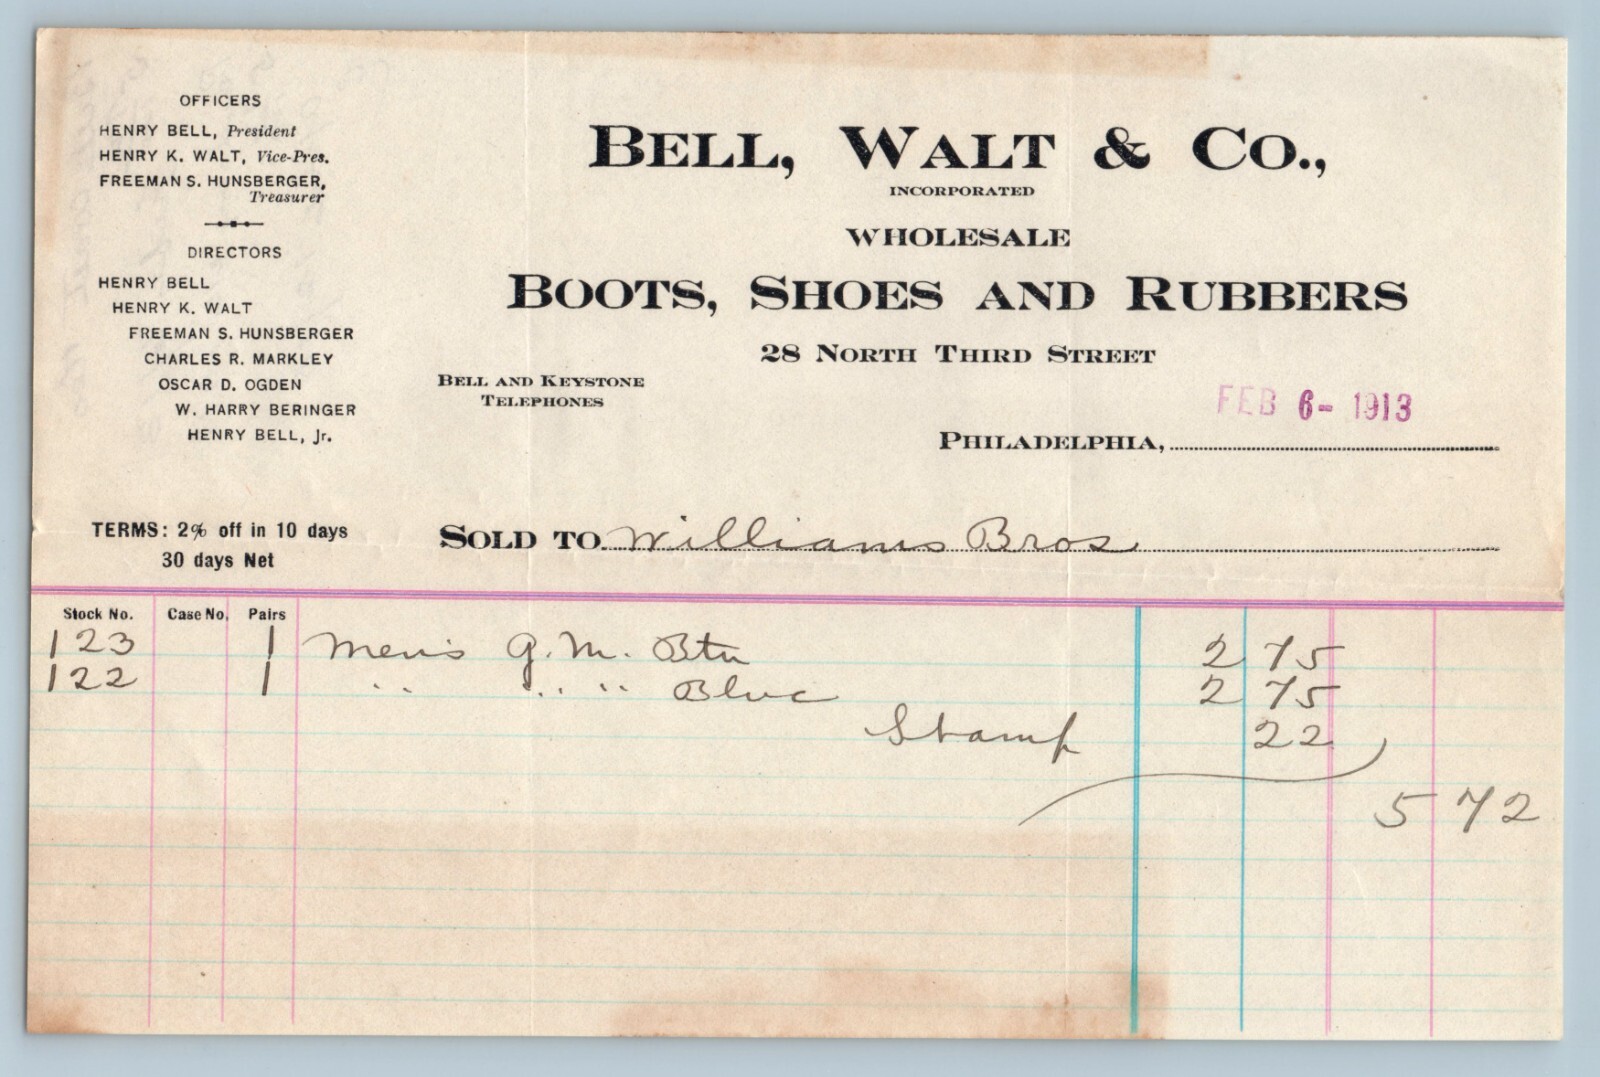 OFFICERS
HENRY BELL, President
HENRY K. WALT, Vice-Pres.
FREEMAN S. HUNSBERGER,
Treasurer
DIRECTORS
HENRY BELL
HENRY K. WALT
FREEMAN S. HUNSBERGER
CHARLES R. MARKLEY
OSCAR D. OGDEN
W. HARRY BERINGER
HENRY BELL, Jr.
BELL, WALT & CO.,
INCORPORATED
WHOLESALE
BOOTS, SHOES AND RUBBERS
28 NORTH THIRD STREET
BELL AND KEYSTONE
TELEPHONES
FEB 6- 1913
PHILADELPHIA,
TERMS: 2% off in 10 days
30 days Net
SOLD TO Williams Bros
Stock No. Case No. Pairs
123 1 Men's G.M. Btn 2 75
122 1 " " " Bluc 2 75
Stamp 22
5 72